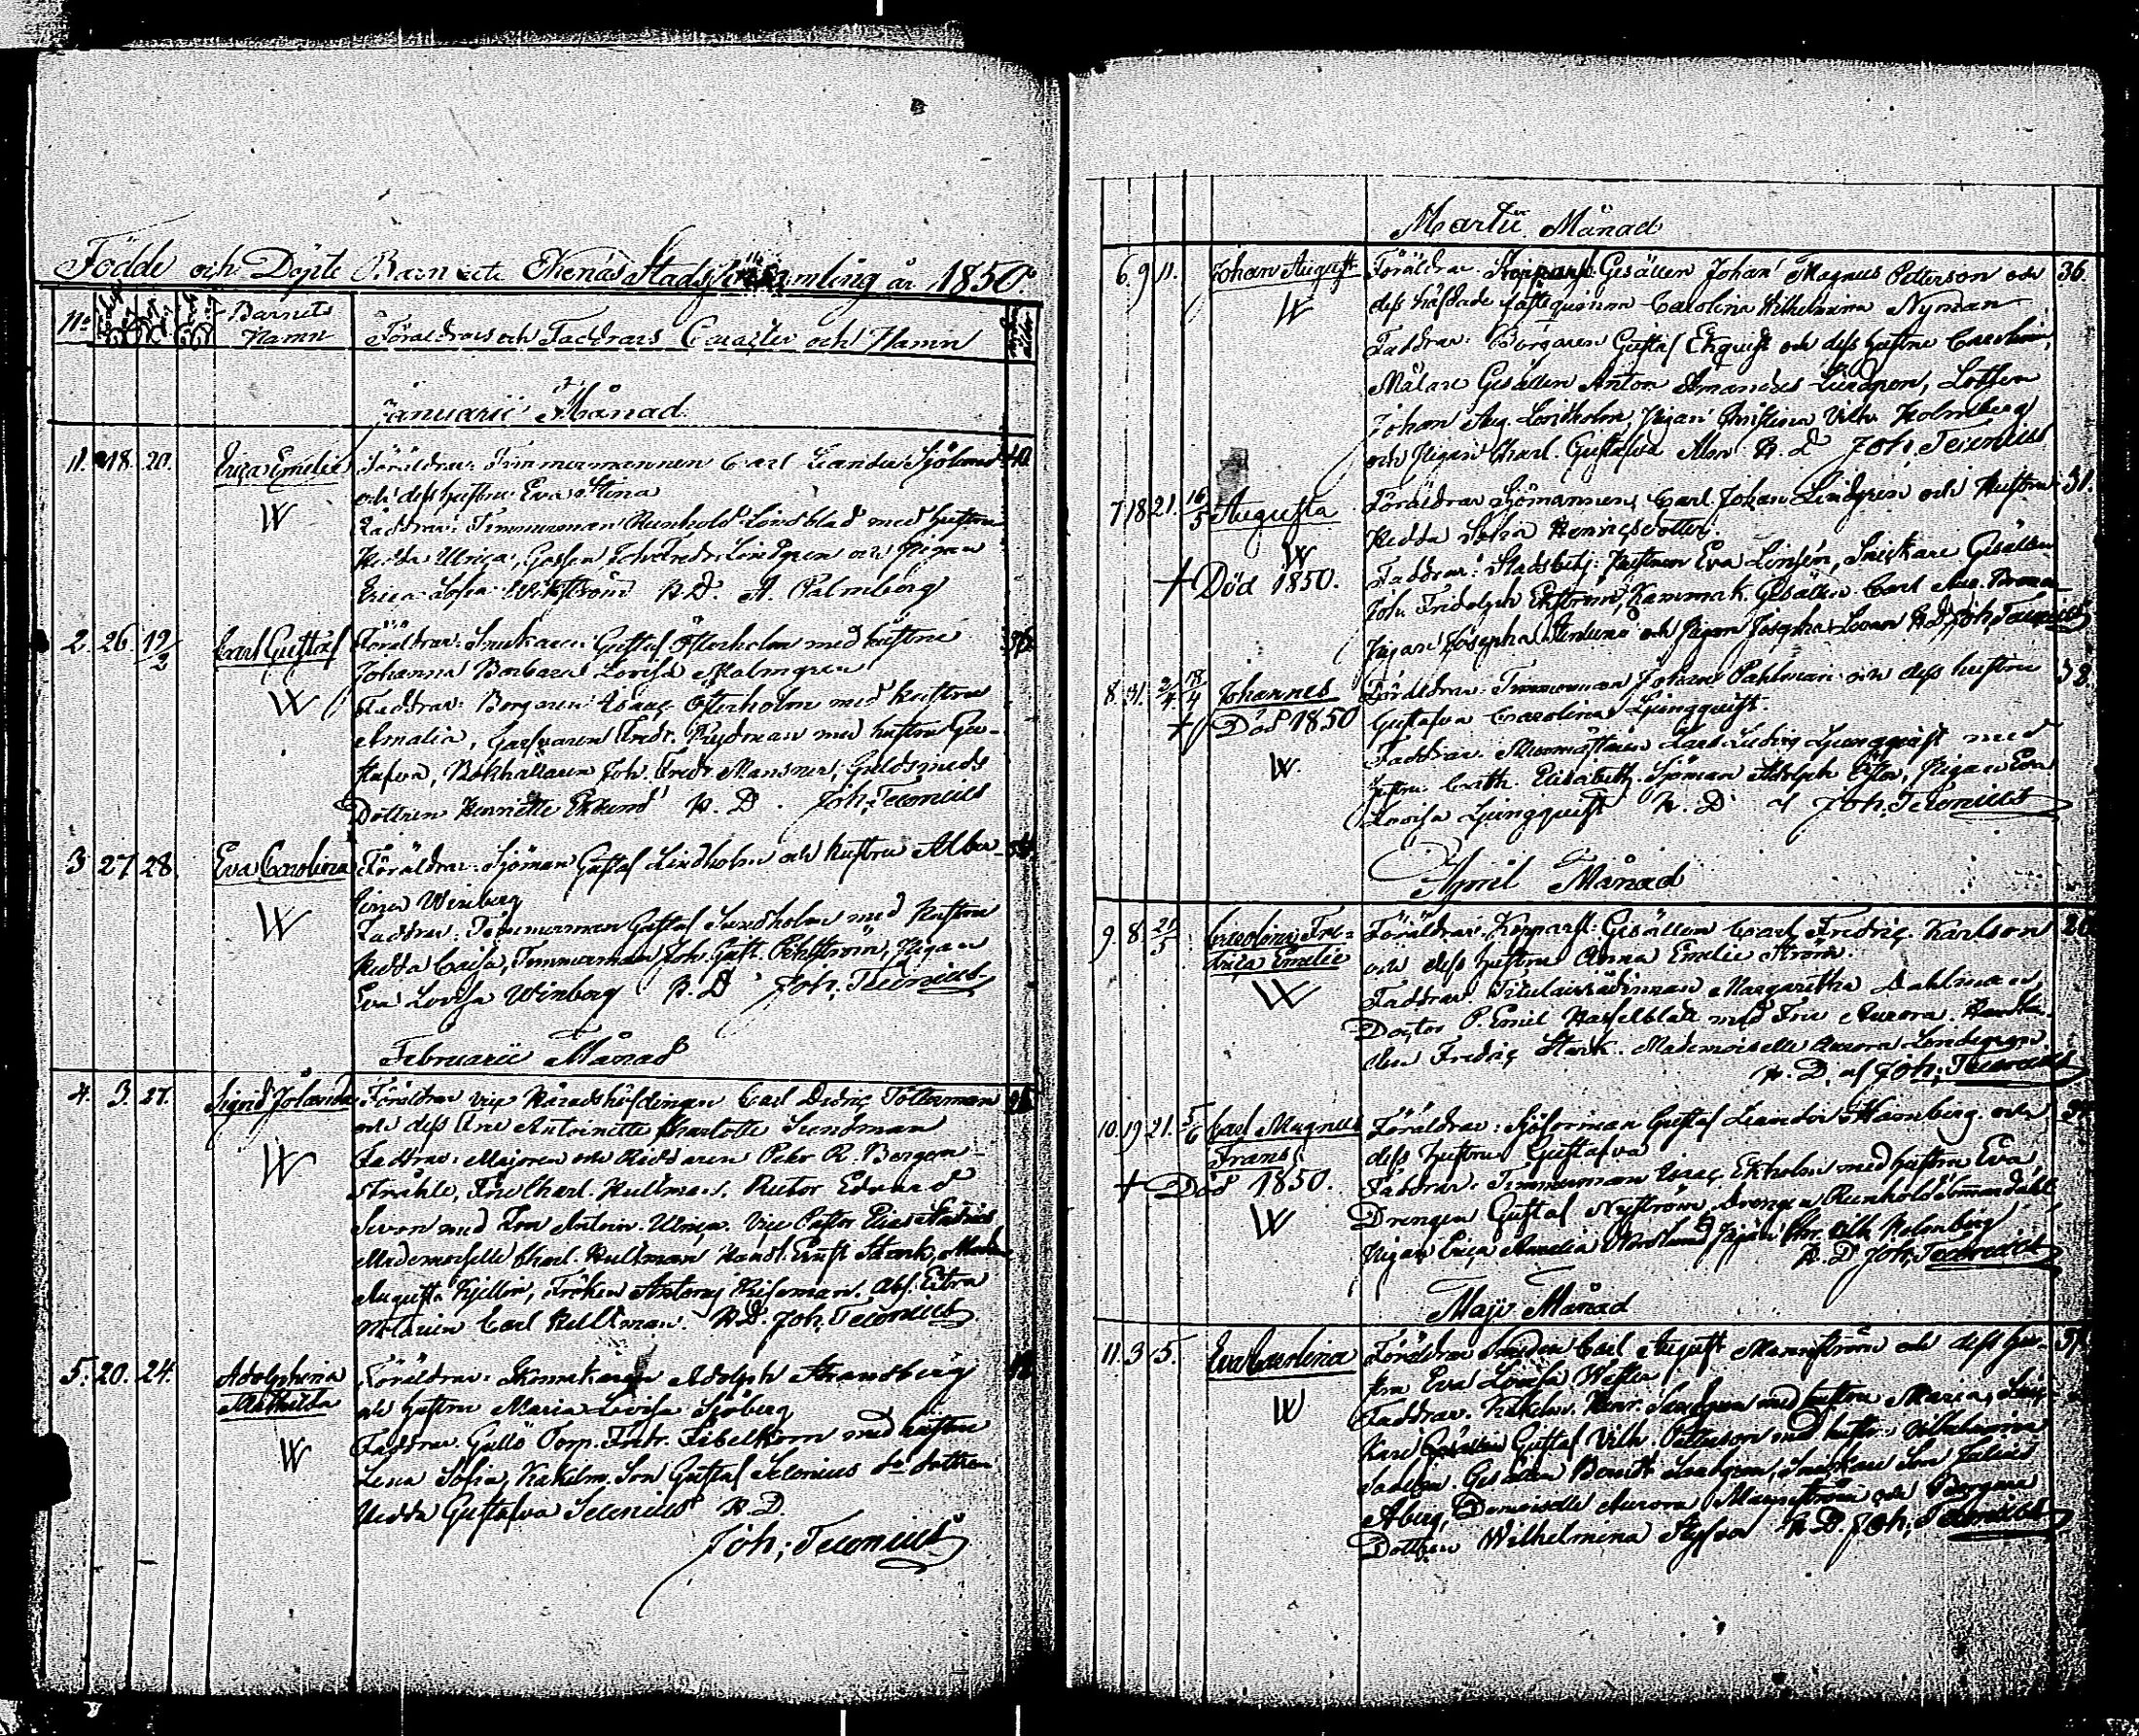 Födde och Döpte Barn uti Ekenäs Stads Församling år 1850.
No
Barnets
Namn
Föräldrars och Faddrars Caracter och Namn
Januarii Månad
1. 18. 20. Erica Emelie Föräldrar: Timmermannen Carl Leander Sjölund 40.
och dess hustru Eva Stina
W Faddrar: Timmerman Reinhold Lindblad med hustru
Hedda Ulrica, Gossen Joh. Fredr. Lindgren och Pigan
Erica Sofia Wikström H.D. A. Palmborg
2. 26. 12/2 Carl Gustaf Föräldrar: Snickaren Gustaf Österholm med hustru
Johanna Barbara Lovisa Malmgren
W Faddrar: Borgaren Isaac Österholm med hustru
Amalia, Garfvaren Fredr. Frydman med hustru Gu-
stafva, Bokhållaren Joh. Fredr. Mansner, Guldsmeds
Dottren Henriette Eklund H.D. Joh: Teconius
3 27 28. Eva Carolina Föräldrar: Sjöman Gustaf Lindholm och hustru Alber-
tina Winberg
W Faddrar: Timmerman Gustaf Lindholm med Hustru
Hedda Caisa, Timmerman Joh. Gust. Öhlström, Pigan
Eva Lovisa Winberg H.D. Joh: Teconius
Februarii Månad
4. 3. 27. Sigrid Jolanda Föräldrar vice Häradshöfdingen Carl Didric Tötterman
och dess Fru Antoinette Charlotte Sundman
W Faddrar: Majoren och Riddaren Pehr R. Bergen-
stråhle, Fru Charl. Hultman, Rector Edvard
med Fru Antoin. Ulrica. Vice Pastor Elias
Mademoiselle Charl. Hultman Handl. Ernst Stark,
Augusta Kjellin, Fröken Antoinj
Notarien Carl Hultman. H.D. Joh: Teconius
5. 20. 24. Adolphina Föräldrar: Skomakaren Adolph Strandberg
Mathilda och hustru Maria Lovisa Sjöberg
W Faddrar: Gullö Torp. Fredr. Fibelkorn med hustru
Lena Sofia, Kakelm. Son Gustaf Selenius dotteren
Hedda Gustafva Selenius H.D.
Joh: Teconius
Martii Månad
6. 9 11. Johan August Föräldrar: Kopparsl. Gesällen Johan Magnus Petterson och 36.
W dess häfdade fästeqvinna Carolina Wilhelmina Nyman
Faddrar: Borgaren Gustaf Ekqvist och dess hustru Carolina,
Målare Gesällen Anton Amandus Lindgren, Lotsen
Johan Aug. Lindholm, Pigan Christina Vilh. Holmberg
och Pigan Charl. Gustafva Alm H.D. Joh: Teconius
7 18 21. 16/5 Augusta Föräldrar Sjömannen Carl Johan Lindgren och Hustru 31.
W Hedda Sofia Henricsdotter
+ Död 1850. Faddrar: Stadsbetj: Hustrun Eva Lindén, Snickare Gesällen
Joh. Fridolph Ekström, Kammak. Gesällen Carl Aug.
Pigan Josepha och Pigan Josepha Lovan H.D. Joh: Teconius
8. 31. 2/4 18/4 Johannes Föräldrar: Timmerman Johan Pahlman och dess hustru 38.
+ Död 1850 Gustafva Carolina Ljungqvist.
W. Faddrar: Murmästaren Carl Ludvig Ljungqvist med
hustru Cath. Elisabeth. Sjöman Adolph Öster, Pigan Eva
Lovisa Ljungqvist H.D. af Joh: Teconius
April Månad
9. 8. 21/5 Carolina Fre- Föräldrar: Kopparsl. Gesällen Carl Fredric Karlson
drica Emelie och dess hustru Anna Emelie Ström.
W Faddrar: Titulairrådinnan Margaretha Dahlman,
Doctor P. Emil Hasselblatt med Fru Aurora. Handl-
Fredric Stark. Mademoiselle Aurora Lindegren
H.D. af Joh: Teconius
10. 19 21. 5/6 Carl Magnus Föräldrar: Sjöförman Gustaf Leander Hamberg och
Frans dess hustru Gustafva
+ Död 1850. Faddrar: Timmerman Isaac Ekholm med hustru Eva
W Drengen Gustaf Nyström, Drengen Reinhold
Pigan Erica Amalia Nordlund Pigan Chr. Vilh. Holmberg
H.D. Joh: Teconius
Maji Månad
11. 3. 5. Eva Carolina Föräldrar Carl August Mannström och dess hu-
stru Eva Lovisa Wester
W Faddrar: Kakelm. Henr. med hustru Maria, Snic-
kare Gesällen Gustaf Vilh. Petterson med hustru Vilhelmina
Gesällen Julius
Åberg, Demoiselle Aurora Mannström och Borgare
Dottren Wilhelmina H.D. Joh: Teconius